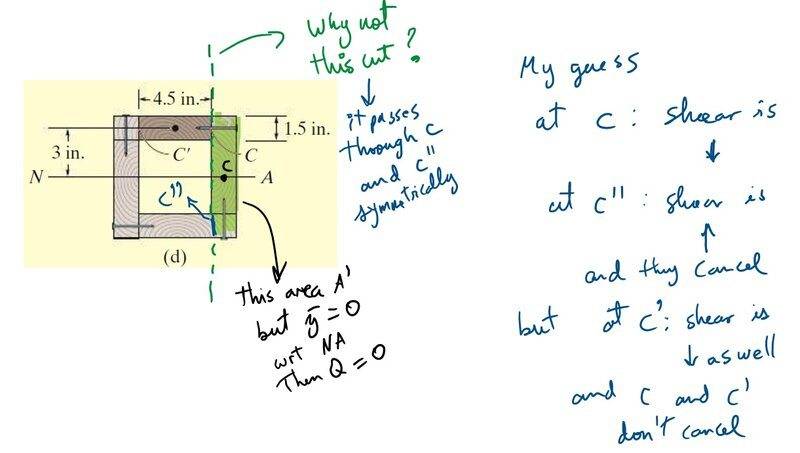 why not
this cut ?
it passes
through C
and C''
symmetrically
4.5 in.
1.5 in.
3 in.
C'
C
N
C
A
C''
(d)
this area A'
but ȳ = 0
wrt NA
Then Q = 0
My guess
at C : shear is
↓
at C'' : shear is
↑
and they cancel
but at C' : shear is
↓ as well
and C and C'
don't cancel